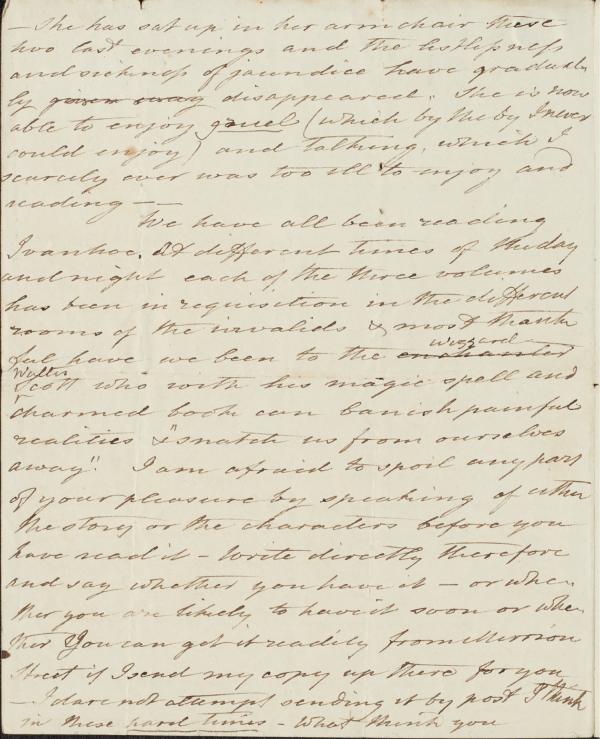 – She has sat up in her arm chair these
two last evenings and the listlessness
and sickness of jaundice have gradual-
ly given away disappeared. She is now
able to enjoy gruel (which by the by I never
could enjoy) and talking, which I
scarcely ever was too ill to enjoy and
reading – –
We have all been reading
Ivanhoe. At different times of the day
and night each of the three volumes
has been in requisition in the different
rooms of the invalids & most thank
ful have we been to the enchanter Wizzard
Walter Scott who with his magic spell and
charmed book can banish painful
realities & "snatch us from ourselves
away". I am afraid to spoil any part
of your pleasure by speaking of either
the story or the characters before you
have read it – Write directly therefore
and say whether you have it – or whe-
ther you are likely to have it soon or whe-
ther you can get it readily from Merrion
Street if I send my copy up there for you
– I dare not attempt sending it by post I think
in these hard times – What think you